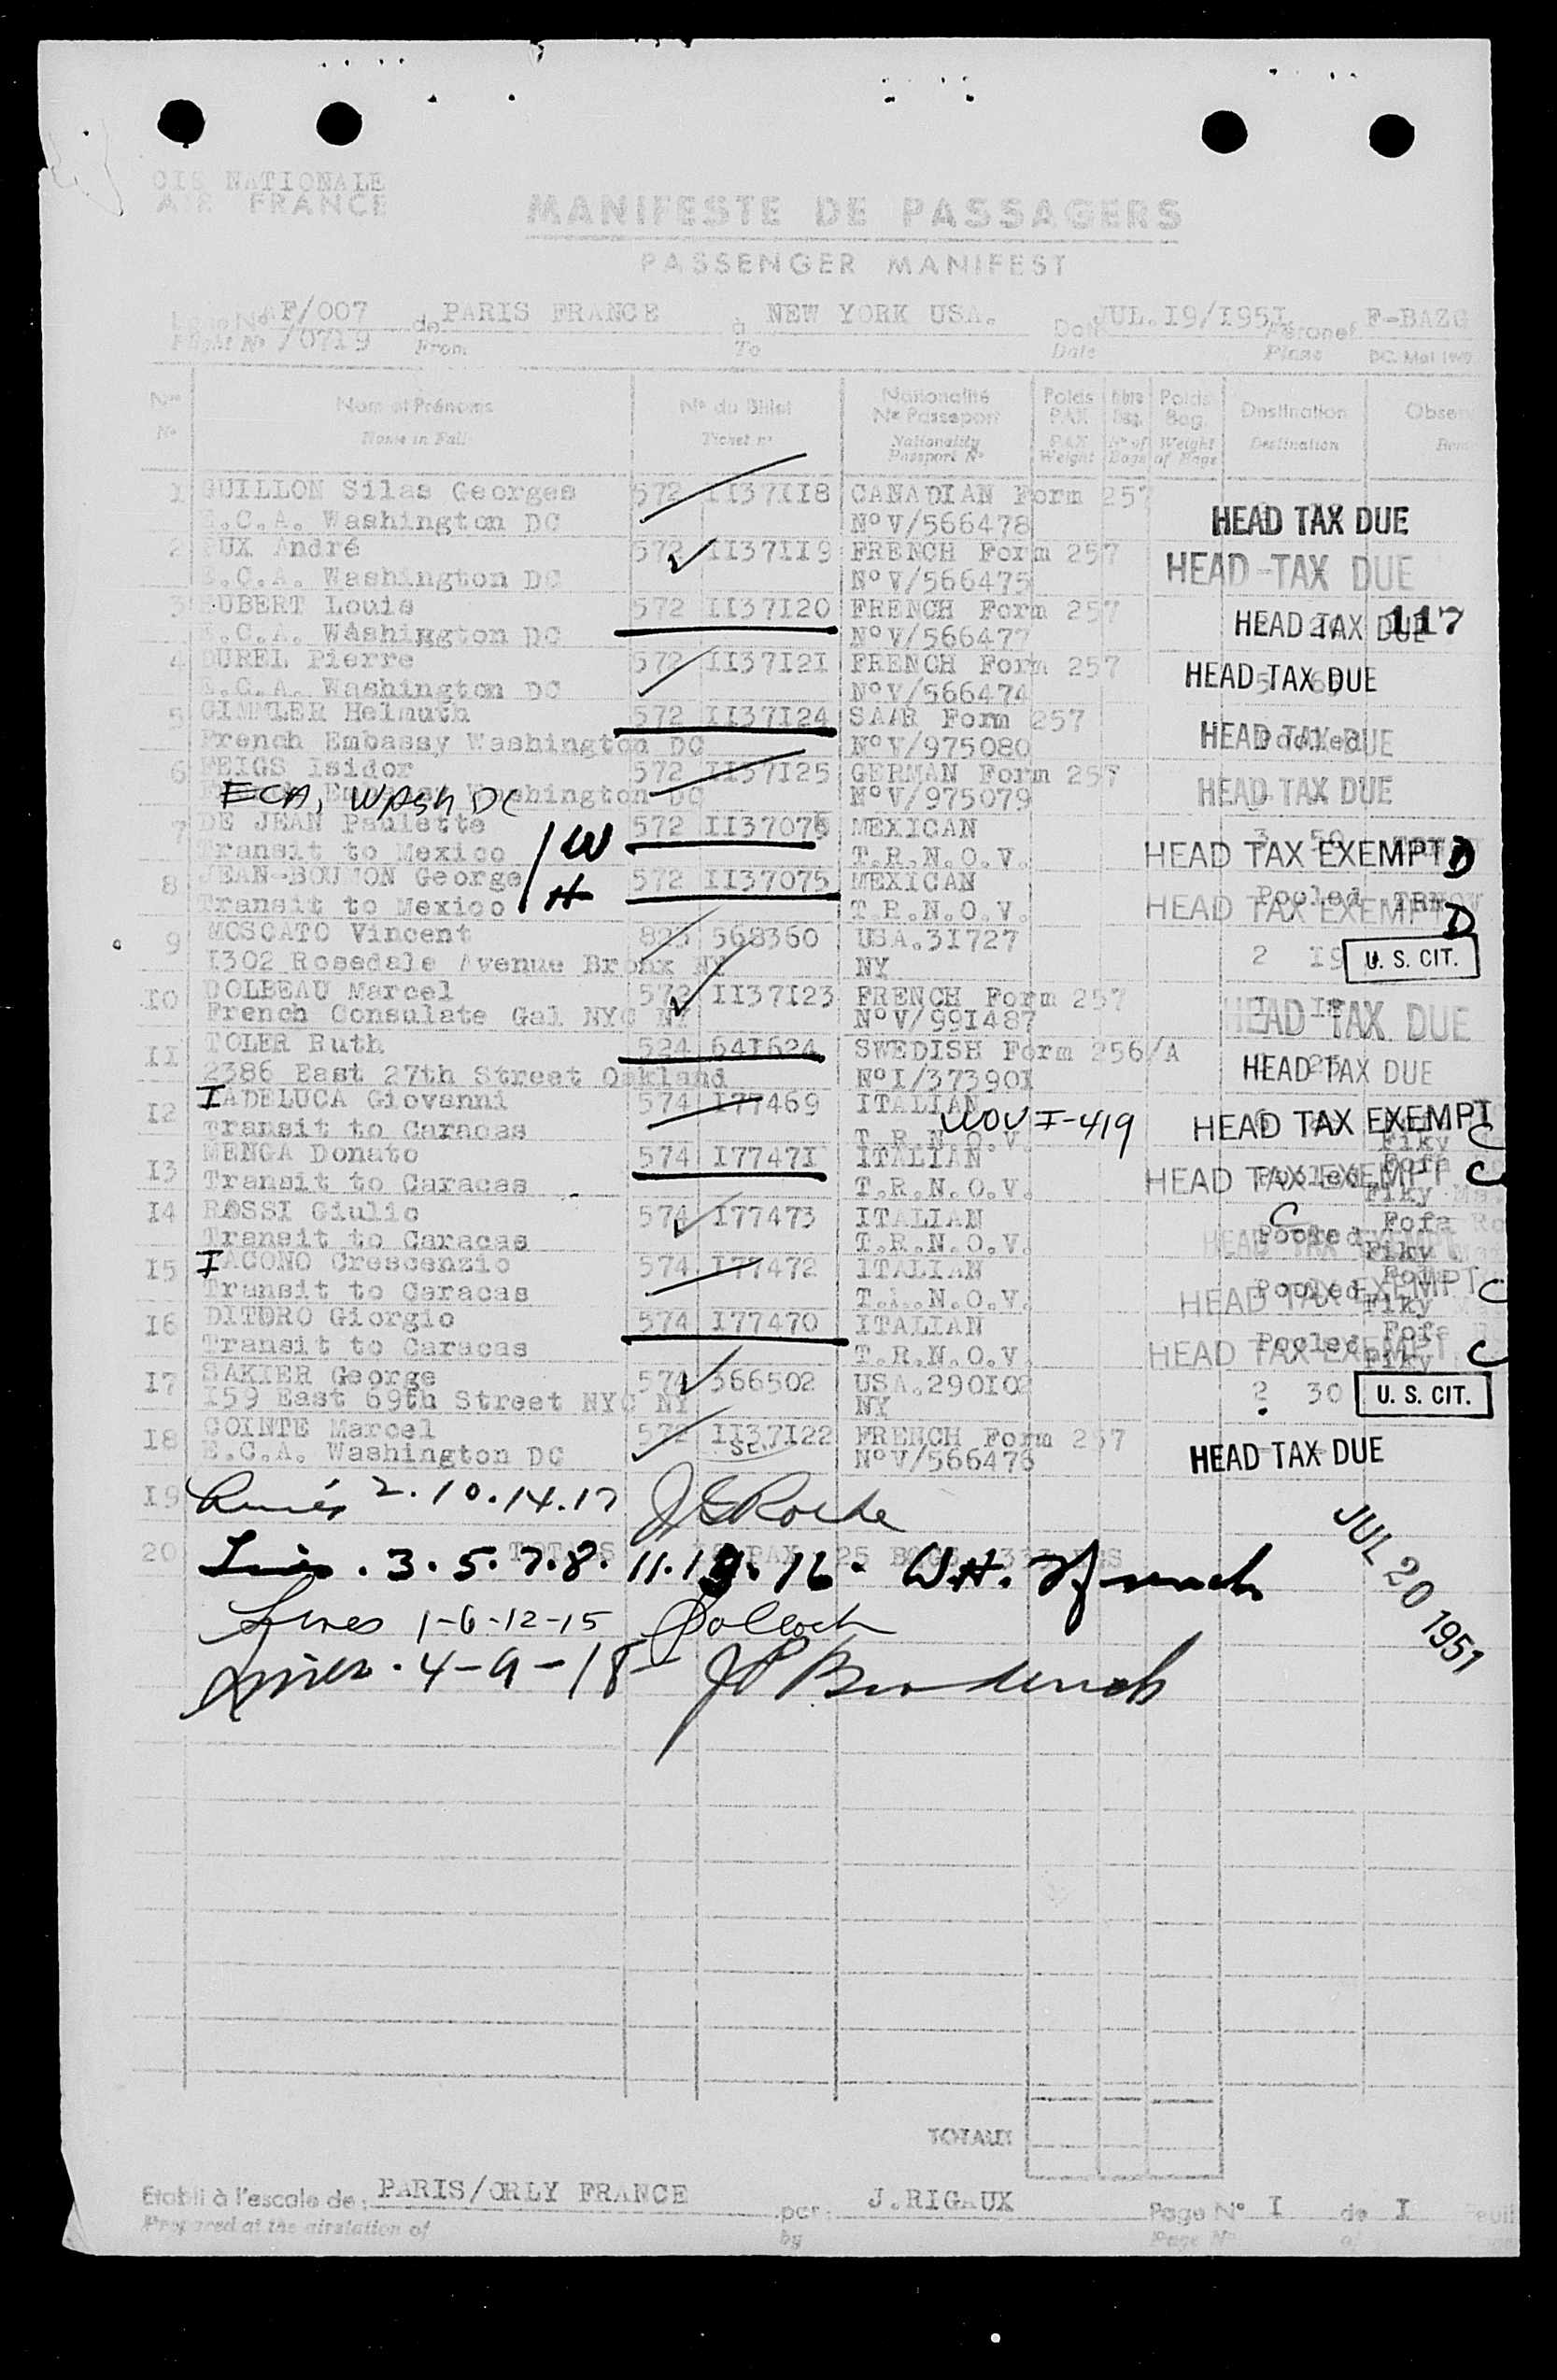 CIE NATIONALE
AIR FRANCE
MANIFESTE DE PASSAGERS
PASSENGER MANIFEST
AF/007 de PARIS FRANCE à NEW YORK USA. Date JUL.I9/I95I F-BAZG
Flight No /07I9 From To Date Plane
Nos Nom et Prénoms No du Billet Nationalité No Passeport Poids PAX Nbre Bag. Poids Bag. Destination
No Name in Full Ticket no Nationality Passport No PAX Weight No of Bags Weight of Bags Destination
1 GUILLON Silas Georges 572 II37II8 CANADIAN Form 257
E.C.A. Washington DC No V/566478 HEAD TAX DUE
2 André 572 II37II9 FRENCH Form 257
E.C.A. Washington DC No V/566475 HEAD TAX DUE
3 HUBERT Louis 572 II37I20 FRENCH Form 257
E.C.A. Washington DC No V/566477 HEAD TAX DUE 117
4 DUREL Pierre 572 II37I2I FRENCH Form 257
E.C.A. Washington DC No V/566474 HEAD TAX DUE
5 GIMMLER Helmuth 572 II37I24 SAAR Form 257
French Embassy Washington DC No V/975080 HEAD TAX DUE
6 FEIGS Isidor 572 II37I25 GERMAN Form 257
ECA, WASH DC Washington DC No V/975079 HEAD TAX DUE
7 DE JEAN Paulette W 572 II37076 MEXICAN 3 50
Transit to Mexico T.R.N.O.V. HEAD TAX EXEMPT D
8 JEAN-BOUMON George H 572 II37075 MEXICAN Pooled TRNOV
Transit to Mexico T.R.N.O.V. HEAD TAX EXEMPT D
9 MOSCATO Vincent 568360 USA.3I727 2 I9 U. S. CIT.
I302 Rosedale Avenue Bronx NY NY
IO DOLBEAU Marcel 572 II37I23 FRENCH Form 257
French Consulate Gal NYC NY No V/99I487 HEAD TAX DUE
II TOLER Ruth 524 64I624 SWEDISH Form 256/A
2386 East 27th Street Oakland No I/37390I HEAD TAX DUE
I2 IADELUCA Giovanni 574 I77469 ITALIAN WOV I-419 HEAD TAX EXEMPT
Transit to Caracas T.R.N.O.V. Fiky C
I3 MENGA Donato 574 I7747I ITALIAN Pofa
Transit to Caracas T.R.N.O.V. HEAD TAX EXEMPT Fiky C
I4 ROSSI Giulio 574 I77473 ITALIAN C Pooled Pofa
Transit to Caracas T.R.N.O.V. HEAD TAX EXEMPT Fiky
I5 IACONO Crescenzio 574 I77472 ITALIAN Pooled Pofa
Transit to Caracas T.R.N.O.V. HEAD TAX EXEMPT Fiky C
I6 DITORO Giorgio 574 I77470 ITALIAN Pooled Pofa
Transit to Caracas T.R.N.O.V. HEAD TAX EXEMPT Fiky C
I7 SAKIER George 574 366502 USA.290I02 2 30 U. S. CIT.
I59 East 69th Street NYC NY NY
I8 COINTE Marcel 572 II37I22 FRENCH Form 257
E.C.A. Washington DC No V/566476 HEAD TAX DUE
I9 2.10.14.17
20 TOTALS PAX 25 BAGS
Lines . 3.5.7.8. 11.13.16. W.H.
JUL 20 1951
Lines 1-6-12-15 Pollock
Lines . 4-9-18
TOTAUX
Etabli à l'escale de: PARIS/ORLY FRANCE par: J.RIGAUX Page No I de I
Prepared at the airstation of by Page No of